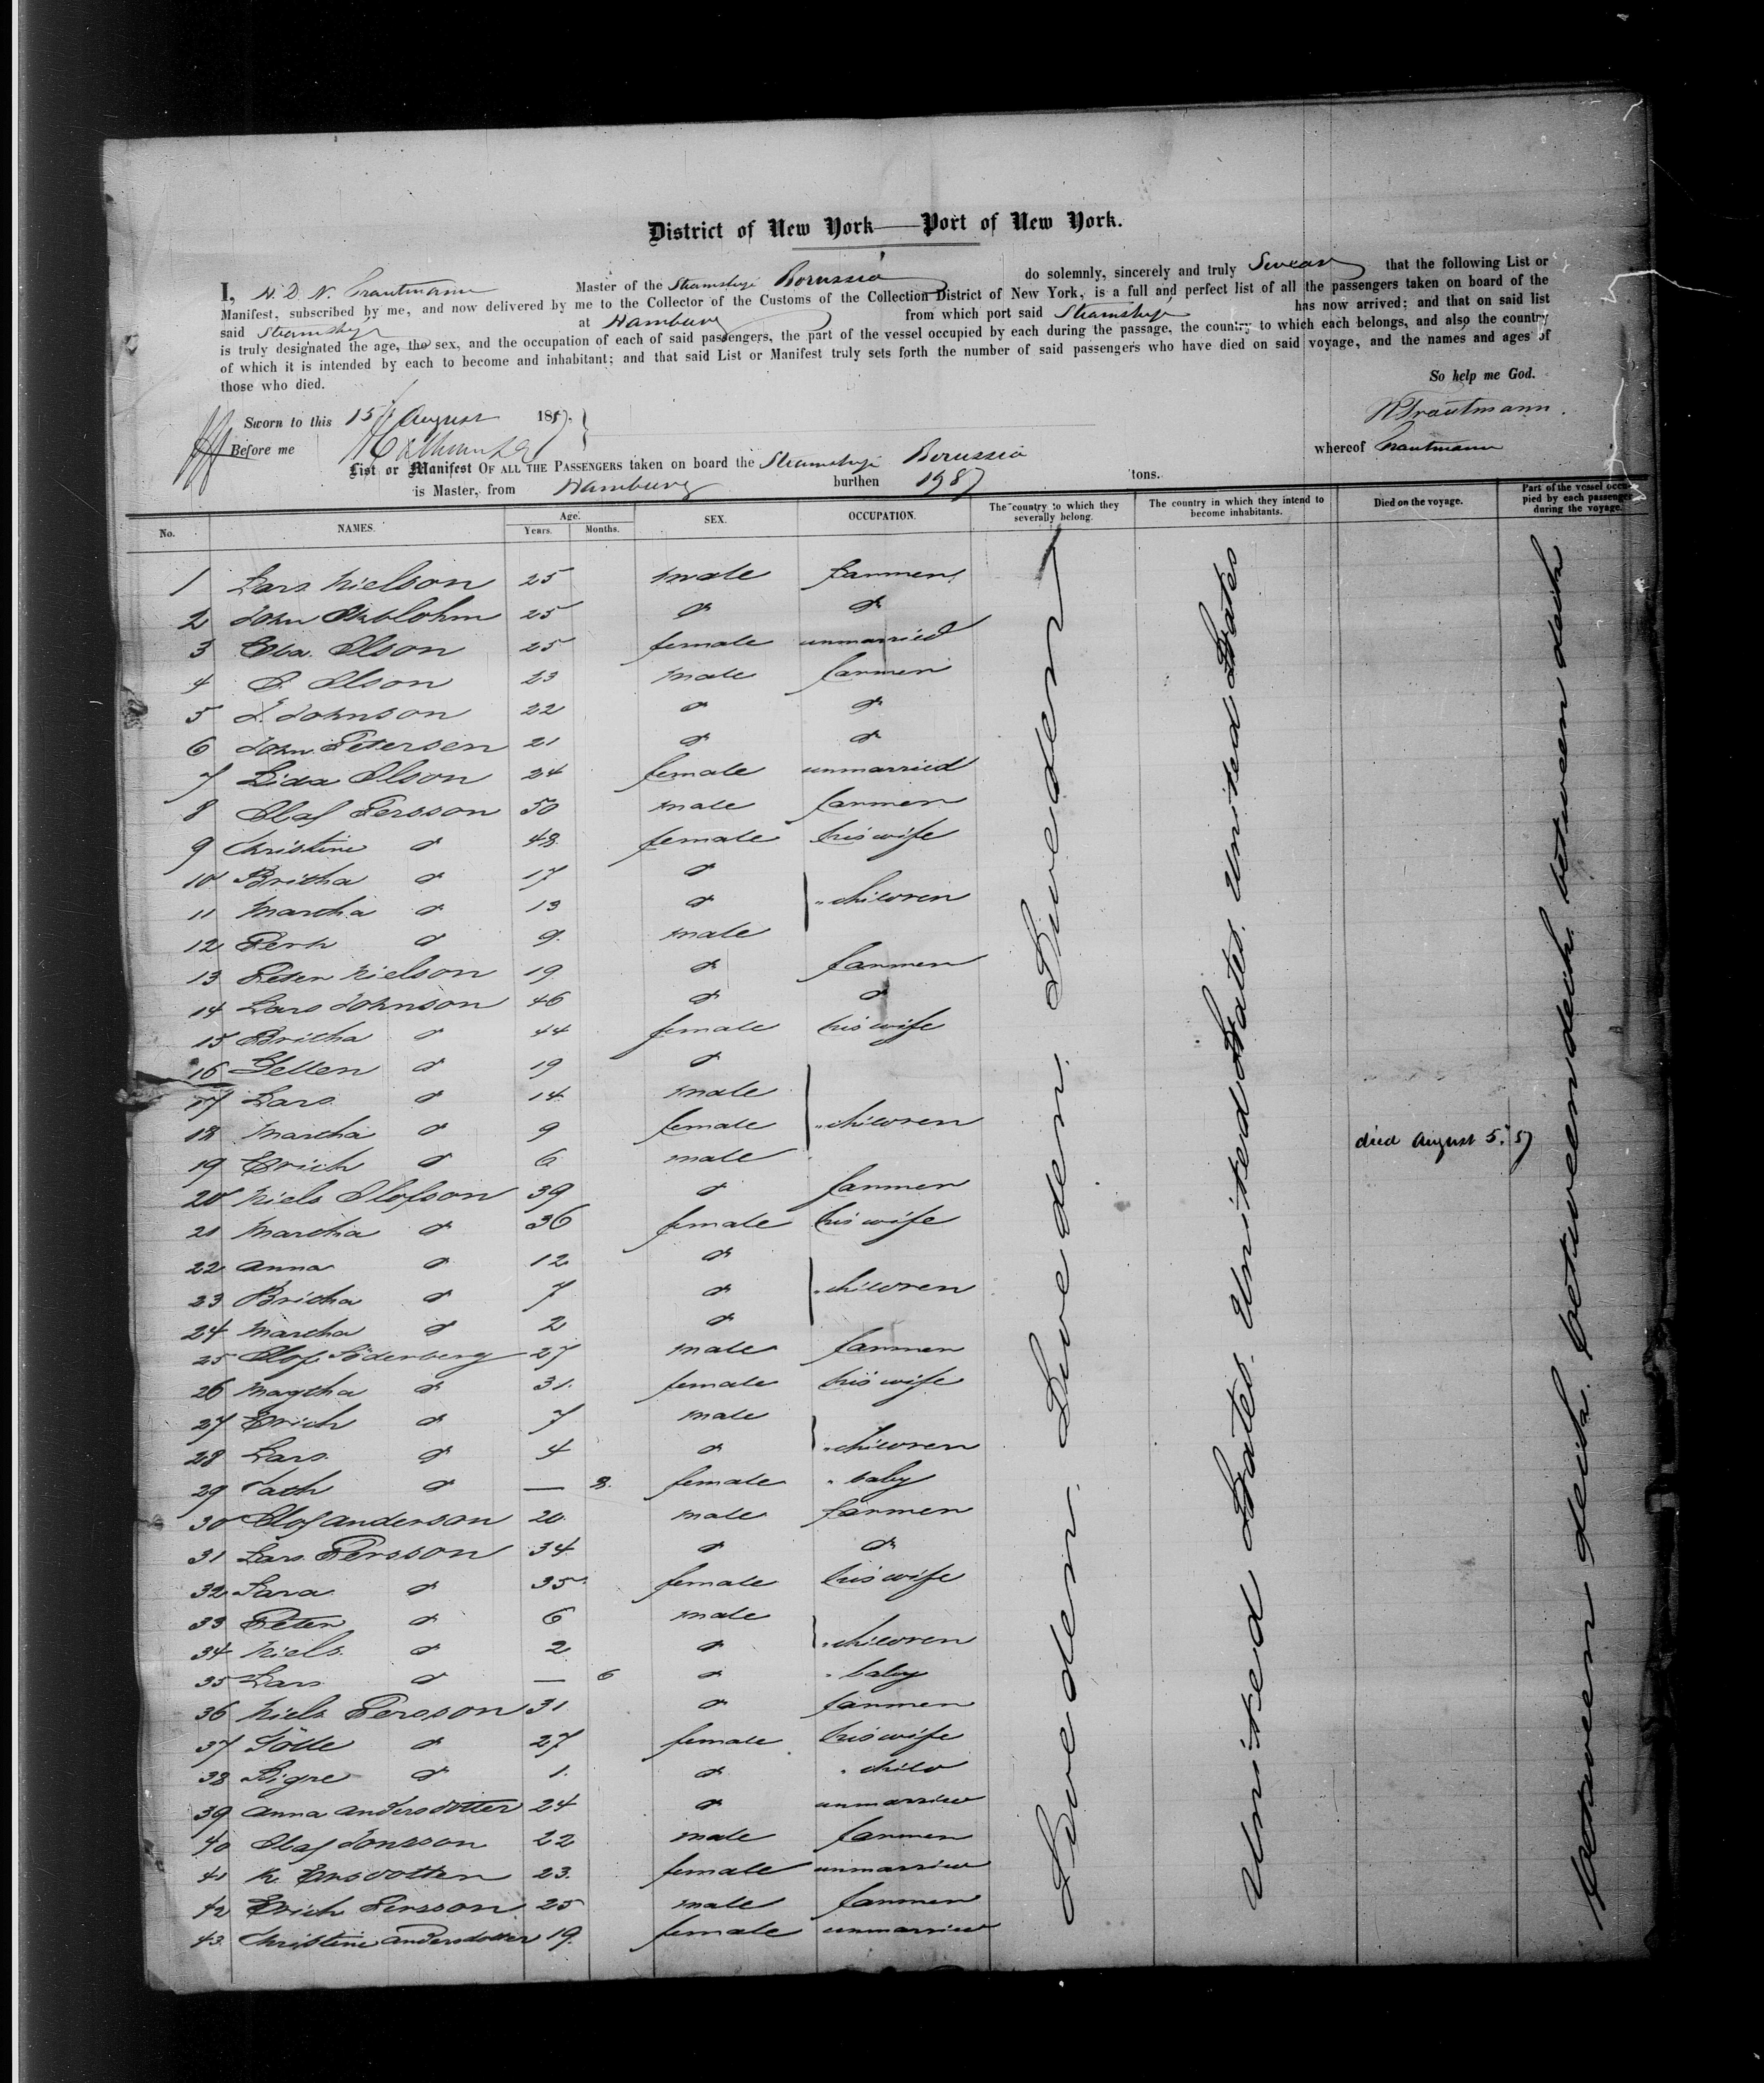 District of New York — Port of New York.
I, N. D. N. Trautmann Master of the Steamship Borussia do solemnly, sincerely and truly Swear that the following List or
Manifest, subscribed by me, and now delivered by me to the Collector of the Customs of the Collection District of New York, is a full and perfect list of all the passengers taken on board of the
said Steamship at Hamburg from which port said Steamship has now arrived; and that on said list
is truly designated the age, the sex, and the occupation of each of said passengers, the part of the vessel occupied by each during the passage, the country to which each belongs, and also the country
of which it is intended by each to become and inhabitant; and that said List or Manifest truly sets forth the number of said passengers who have died on said voyage, and the names and ages of
those who died.
So help me God.
Sworn to this 15 August 1857.
N Trautmann.
Before me
List or Manifest OF ALL THE PASSENGERS taken on board the Steamship Borussia whereof Trautmann
is Master, from Hamburg burthen 1987 tons.
No. NAMES. Age. Years. Months. SEX. OCCUPATION. The country to which they severally belong. The country in which they intend to become inhabitants. Died on the voyage. Part of the vessel occupied by each passenger during the voyage.
1 Lars Nielson 25 male farmer
2 John 25 do do
3 Olson 25 female unmarried
4 O. Olson 23 male farmer
5 L. Johnson 22 do do
6 John Petersen 21 do do
7 Lida Olson 24 female unmarried
8 Olaf Persson 50 male farmer
9 Christine do 48 female his wife
10 Britha do 17 do
11 Martha do 13 do " children
12 Pehr do 9. male
13 Peter Nielson 19 do farmer
14 Lars Johnson 46 do do
15 Britha do 44 female his wife
16 Gellen do 19 do
17 Lars do 14 male
18 Martha do 9 female " children died August 5. 57
19 Erich do 6 male
20 Niels Olofson 39 do farmer
21 Martha do 36 female his wife
22 Anna do 12 do
23 Britha do 7 do " children
24 Martha do 2 do
25 Olof Söderberg 27 male farmer
26 Magtha do 31. female his wife
27 Erich do 7 male
28 Lars do 4 do " children
29 do — 3. female " baby
30 Olof Anderson 20. male farmer
31 Lars Persson 34 do do
32 Sara do 35 female his wife
33 Peter do 6 male
34 Niels do 2 do " children
35 Lars do — 6 do " baby
36 Niels Persson 31 do farmer
37 do 27 female his wife
38 Signe do 1. do " child
39 Anna Andersdotter 24 do unmarried
40 Olaf Jonsson 22 male farmer
41 K. Ersdotter 23. female unmarried
42 Erich Persson 25 male farmer
43. Christine Andersdotter 19. female unmarried
Sweden. Sweden. Sweden. Sweden
United States. United States. United States. United States
between deck. between deck. between deck